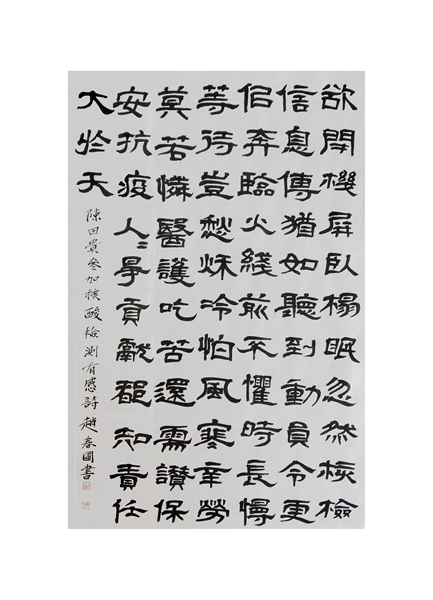 欲閉機屏臥榻眠忽然核檢
信息傳猶如聽到動員令更
佀奔臨火綫前不懼時長慢
等待豈愁秌冷怕風寒辛勞
莫若憐醫護吃苦還需讚保
安抗疫人〻貢獻都知責任
大於天
陳田貴參加核酸檢測有感詩 趙春圖書